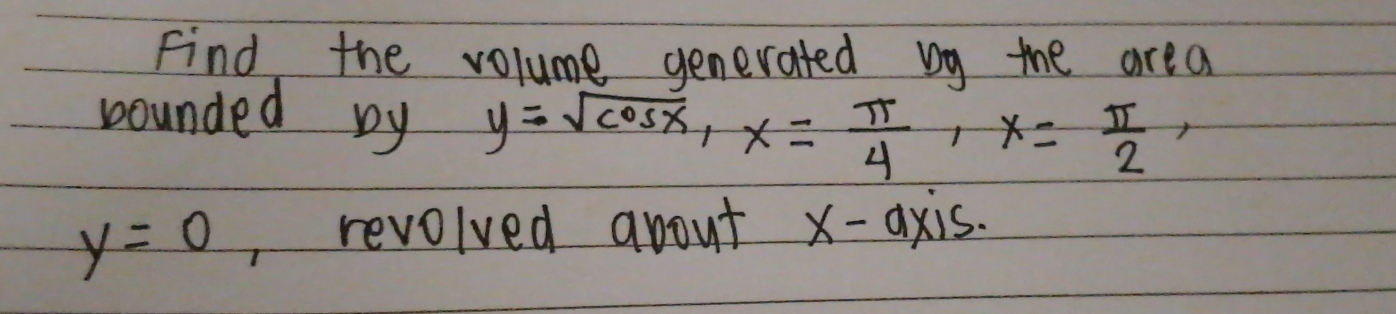 Find the volume generated by the area
bounded by y = √cosx, x = π/4, x = π/2,
y = 0, revolved about x-axis.